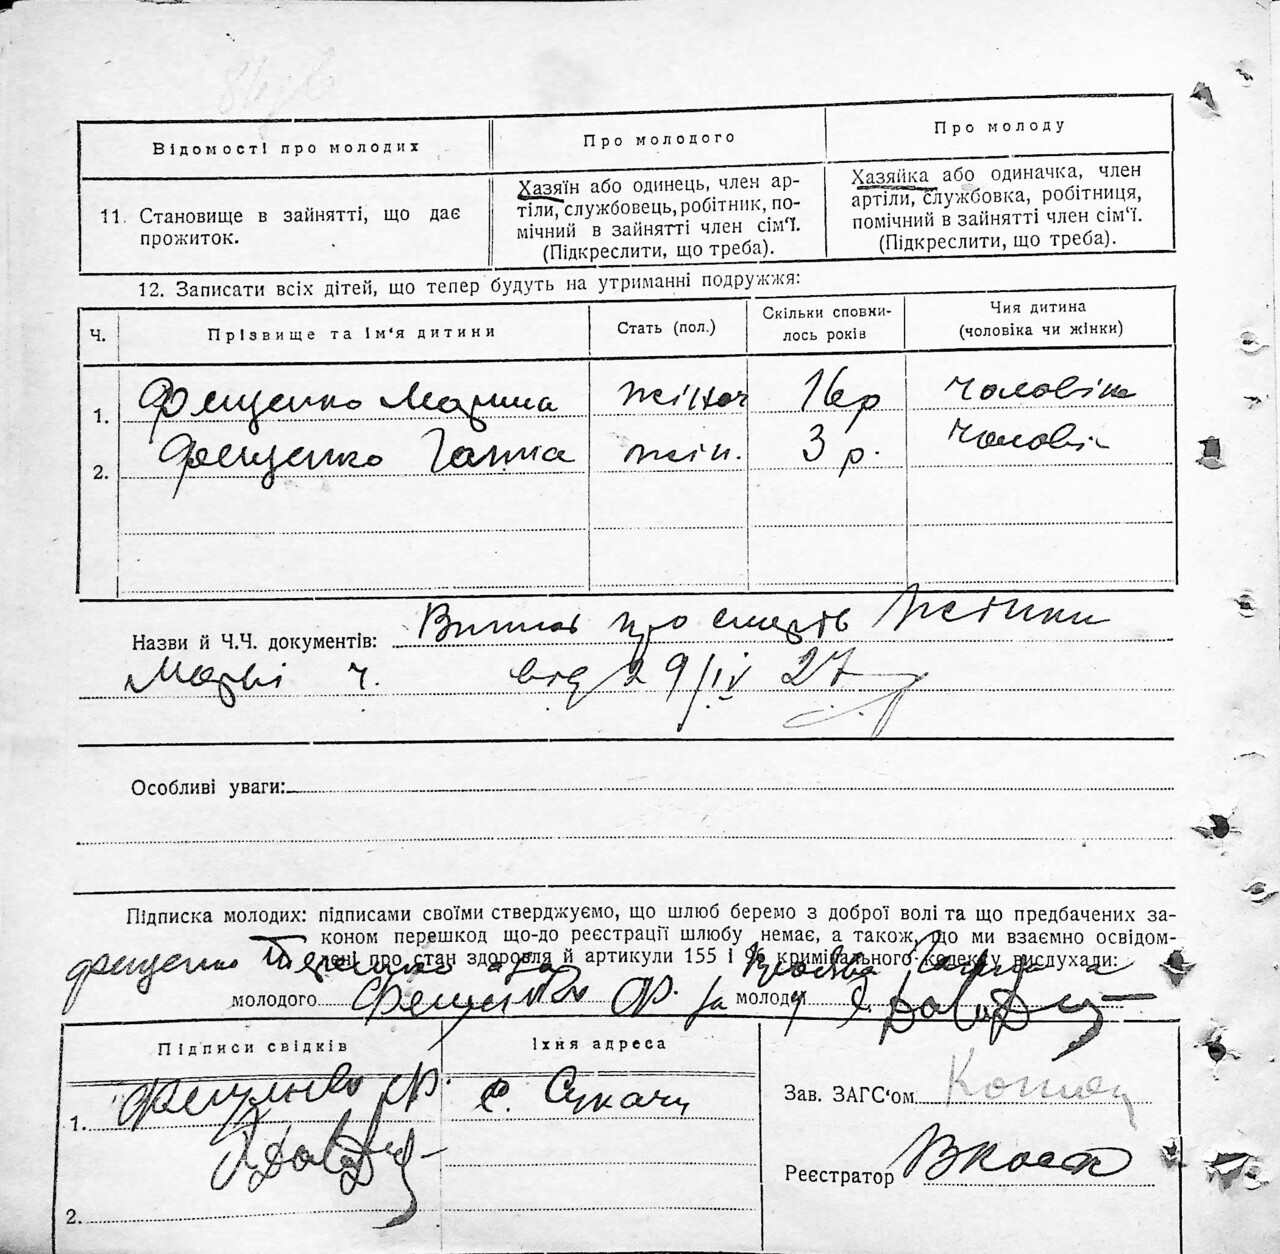 Відомості про молодих Про молодого Про молоду
11. Становище в зайнятті, що дає прожиток.
Хазяїн або одинець, член ар-
тіли, службовець, робітник, по-
мічний в зайнятті член сім‘ї.
(Підкреслити, що треба).
Хазяйка або одиначка, член
артіли, службовка, робітниця,
помічний в зайнятті член сім‘ї.
(Підкреслити, що треба).
12. Записати всіх дітей, що тепер будуть на утриманні подружжя:
Ч. Прізвище та ім‘я дитини Стать (пол.) Скільки сповни-
лось років Чия дитина
(чоловіка чи жінки)
1. Фещенко Марина жіноч 16 р чоловіка
2. Фещенко Ганна жін. 3 р. чоловік
Назви й Ч.Ч. документів: про смерть жінки
Марії ч. від 29/IV 27
Особливі уваги:
Підписка молодих: підписами своїми стверджуємо, що шлюб беремо з доброї волі та що предбачених за-
коном перешкод що-до реєстрації шлюбу немає, а також, що ми взаємно освідом-
лені про стан здоровля й артикули 155 і 96 кримінального кодексу вислухали:
Фещенко
молодого Фещенко Ф. за молоду
Підписи свідків Їхня адреса
1. Ф. с. Сукачі
2.
Зав. ЗАГС‘ом
Реєстратор